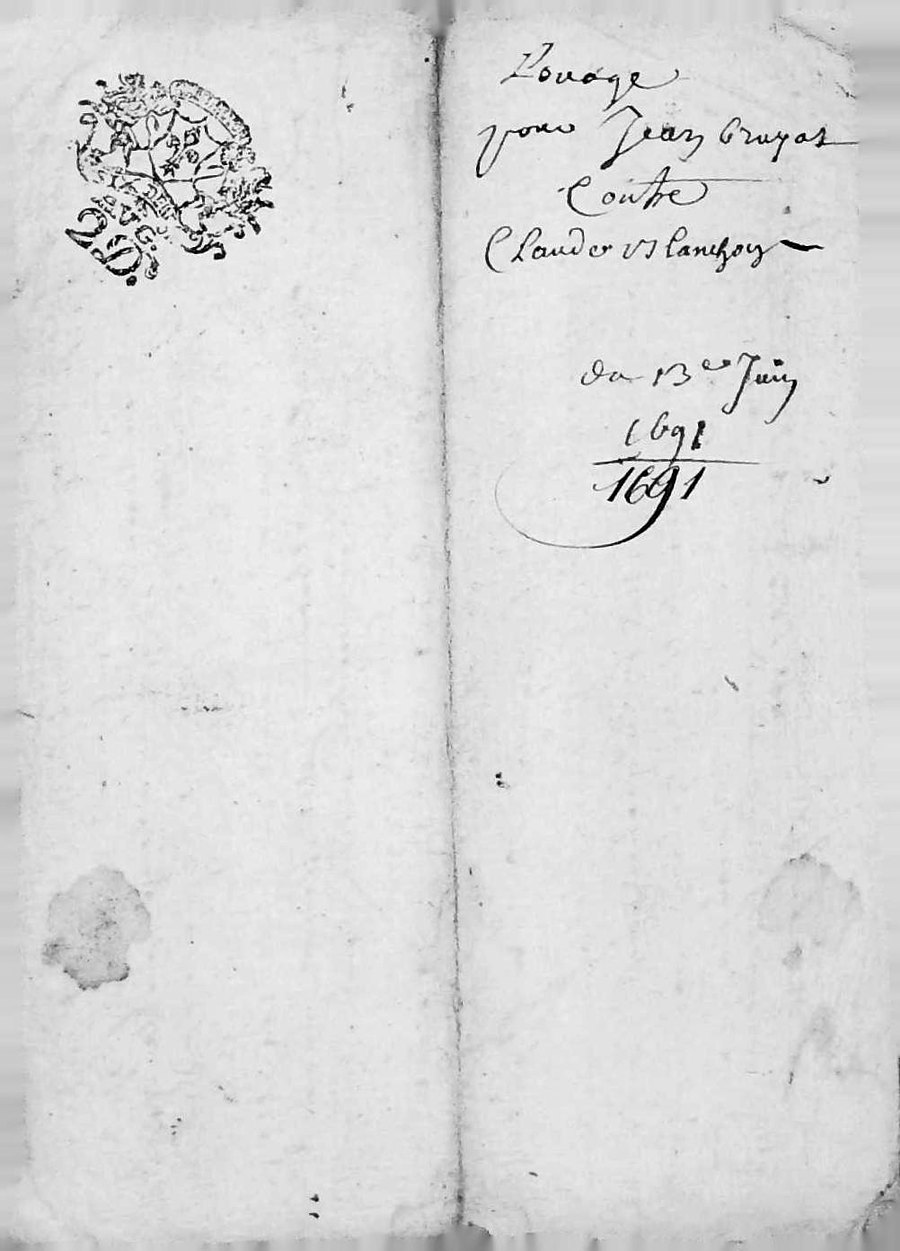 AVG.
2S.
Louage
pour Jean bruyas
Contre
Claude Blanchon
du 13e Juin
1691
1691